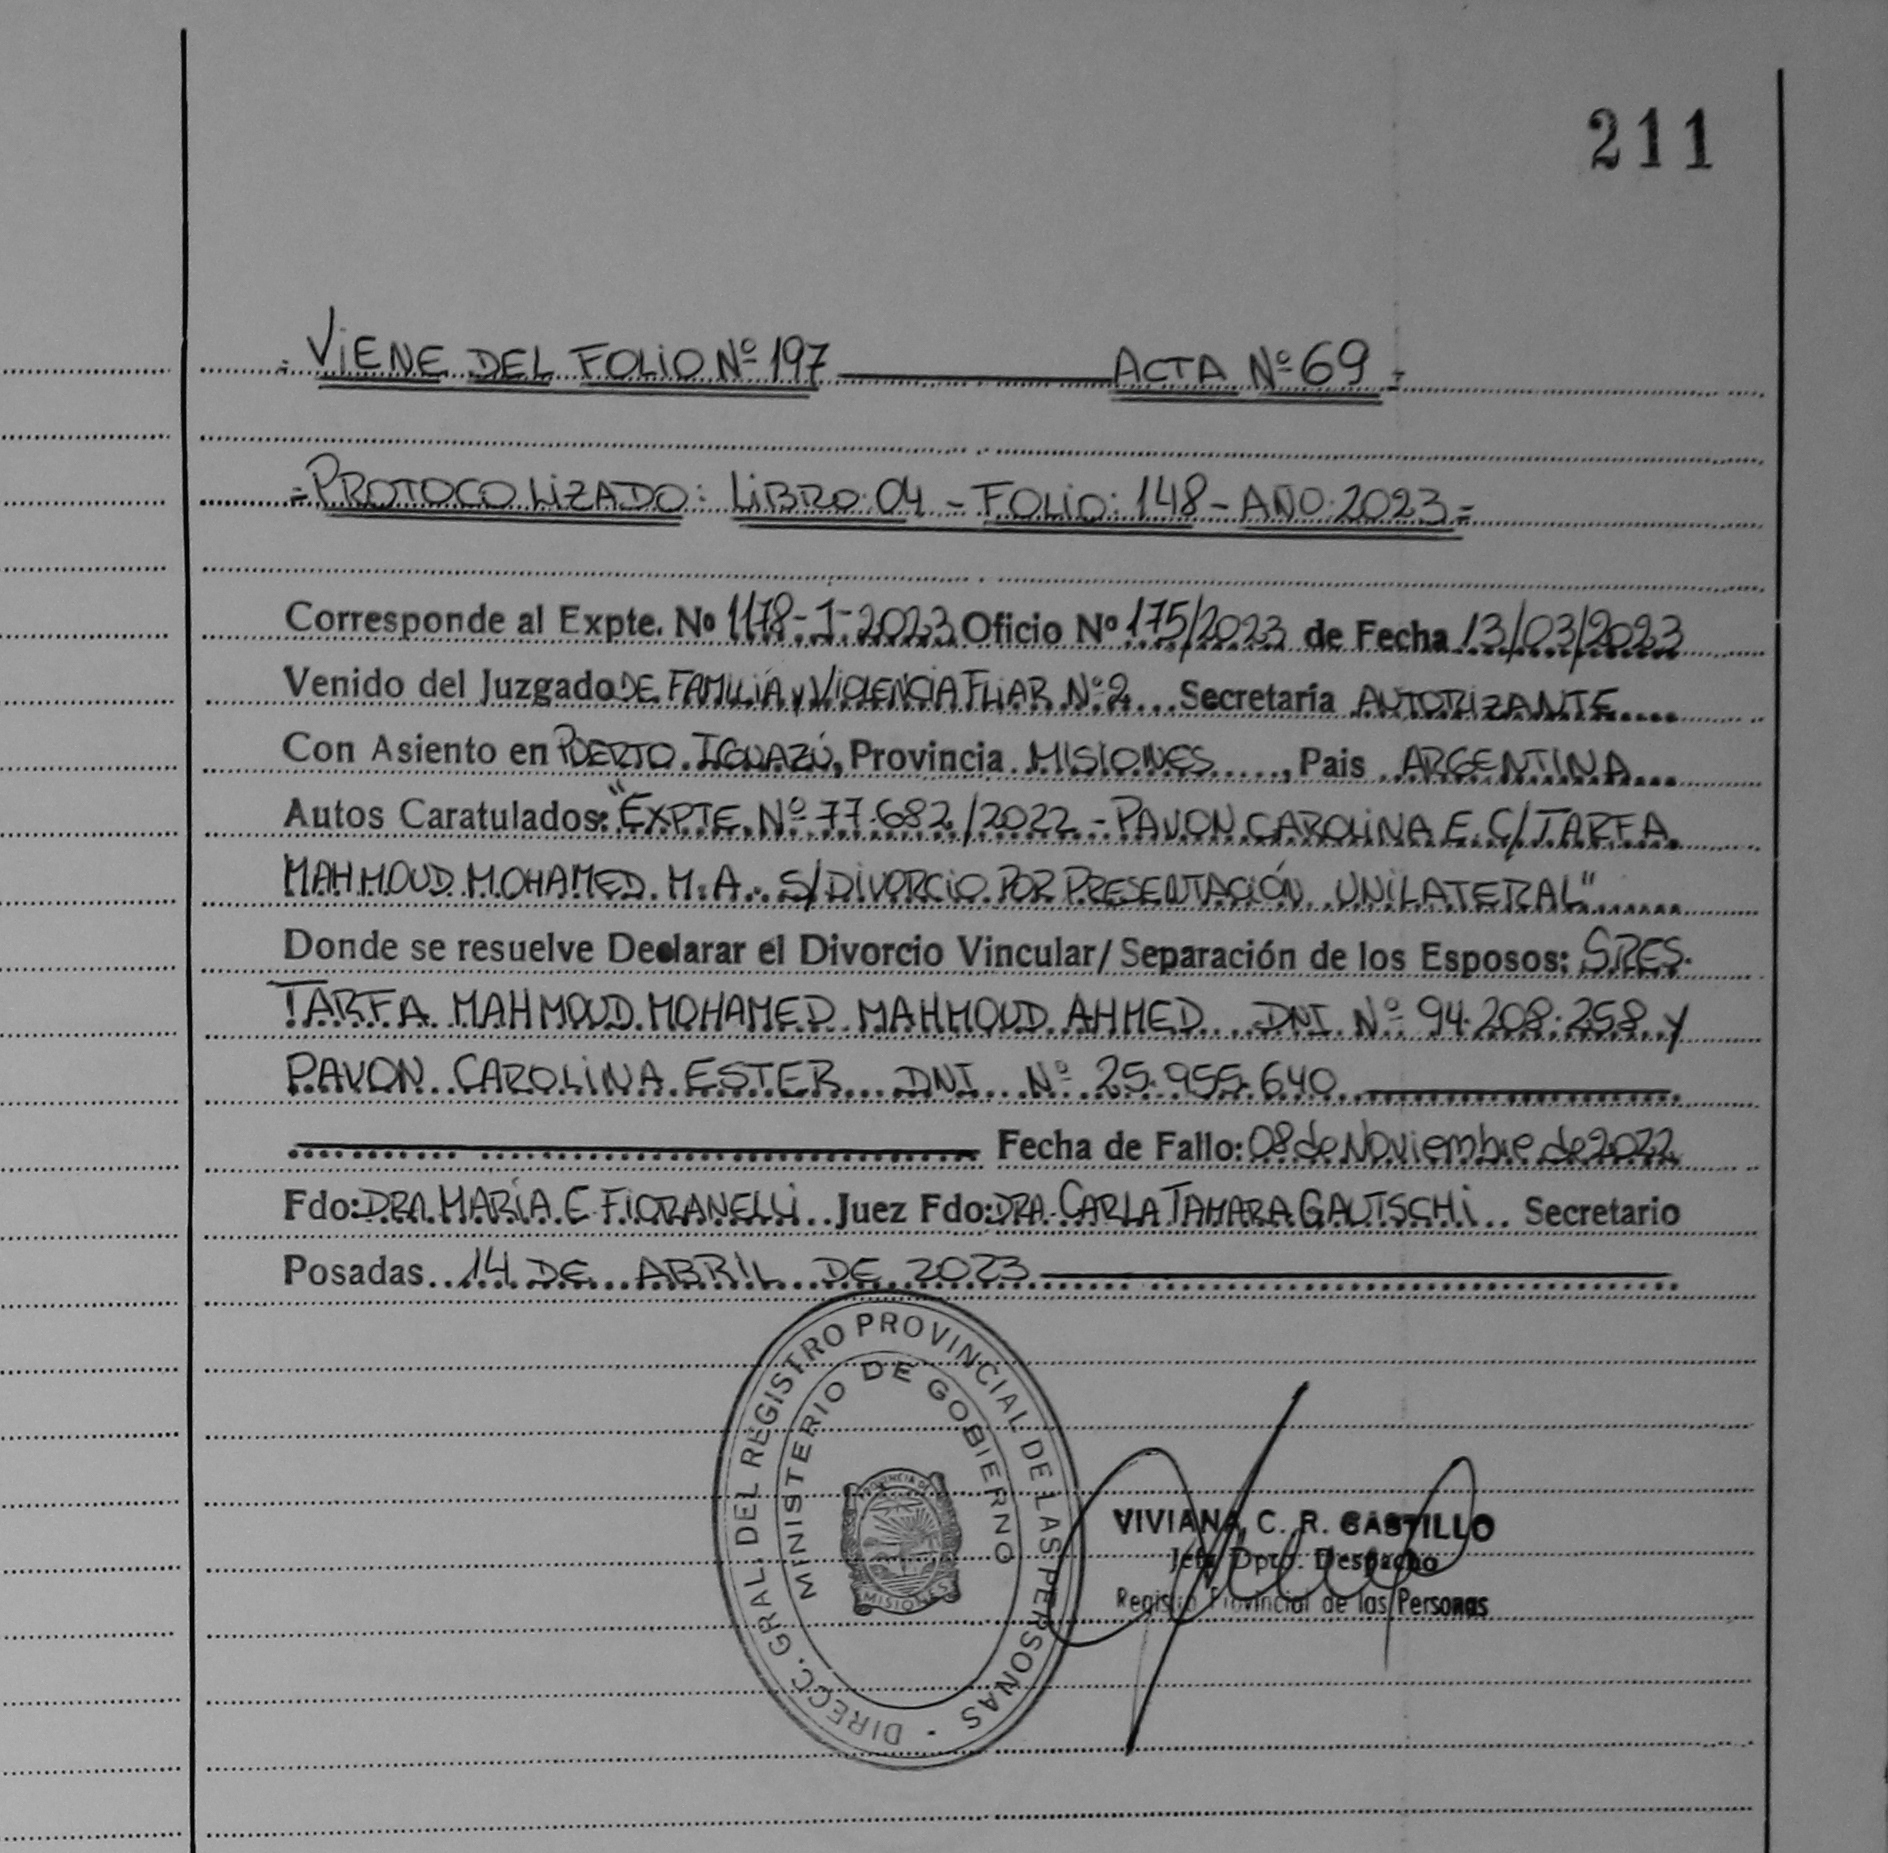 211
= VIENE DEL FOLIO Nº 197 ACTA Nº 69 =
= PROTOCOLIZADO: LIBRO: 04 - FOLIO: 148 - AÑO: 2023 =
Corresponde al Expte. Nº 1178-J-2023 Oficio Nº 175/2023 de Fecha 13/03/2023
Venido del Juzgado DE FAMILIA y VIOLENCIA FLIAR Nº 2 Secretaría AUTORIZANTE
Con Asiento en PUERTO IGUAZÚ, Provincia MISIONES, Pais ARGENTINA
Autos Caratulados: "EXPTE. Nº 77.682/2022 - PAVON CAROLINA E. C/ TARFA
MAHMOUD MOHAMED M. A. S/ DIVORCIO POR PRESENTACIÓN UNILATERAL"
Donde se resuelve Declarar el Divorcio Vincular/ Separación de los Esposos: SRES.
TARFA MAHMOUD MOHAMED MAHMOUD AHMED DNI Nº 94.208.258 y
PAVON CAROLINA ESTER DNI Nº 25.955.640
Fecha de Fallo: 08 de Noviembre de 2022
Fdo: DRA. MARÍA E. FIORANELLI Juez Fdo: DRA. CARLA TAMARA GAUTSCHI Secretario
Posadas 14 DE ABRIL DE 2023
DIRECC. GRAL. DEL REGISTRO PROVINCIAL DE LAS PERSONAS -
MINISTERIO DE GOBIERNO
PROVINCIA DE
MISIONES
VIVIANA C. R. CASTILLO
Jefe Dpto. Despacho
Registro Provincial de las Personas